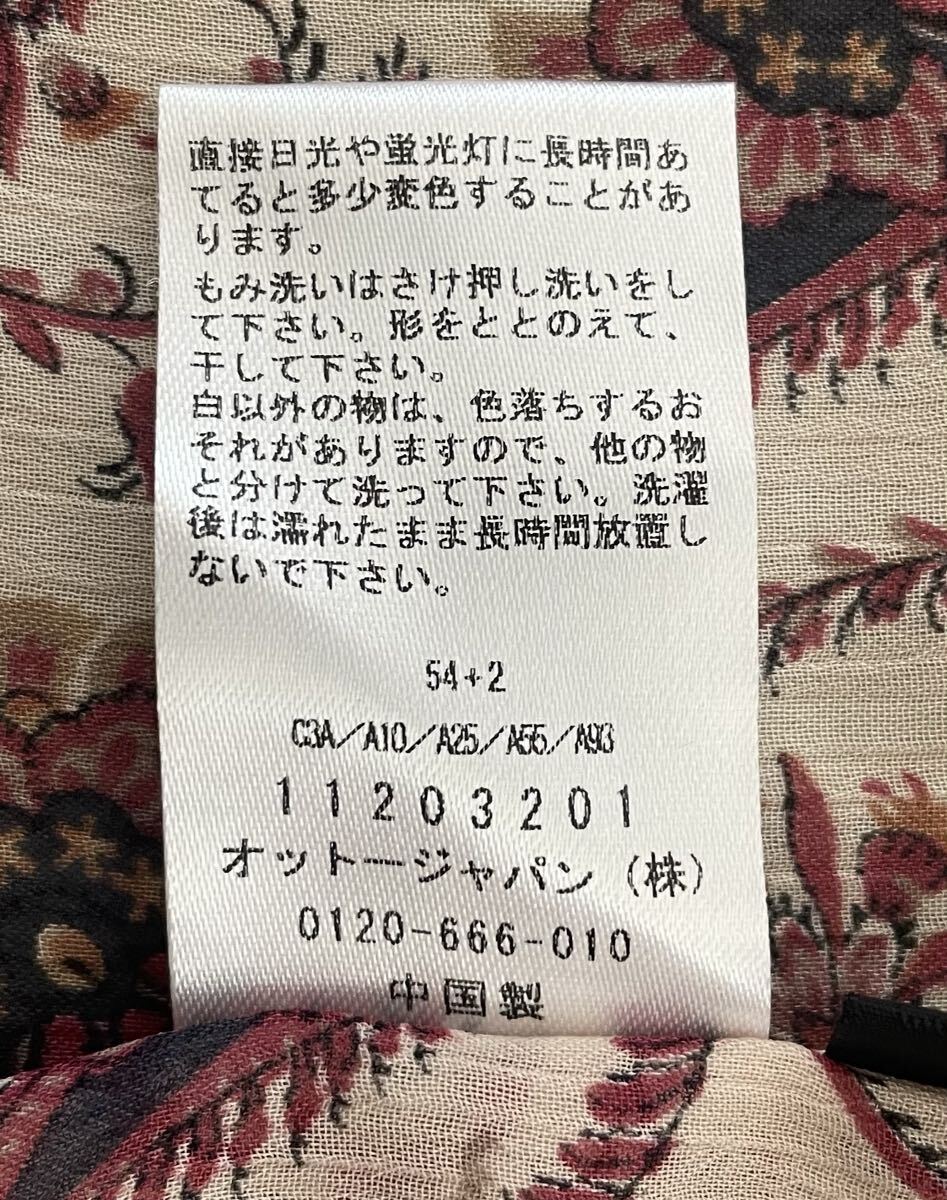 直接日光や蛍光灯に長時間あ
てると多少変色することがあ
ります。
もみ洗いはさけ押し洗いをし
て下さい。形をととのえて、
干して下さい。
白以外の物は、色落ちするお
それがありますので、他の物
と分けて洗って下さい。洗濯
後は濡れたまま長時間放置し
ないで下さい。
54+2
C3A/A10/A25/A55/A93
11203201
オットージャパン(株)
0120-666-010
中国製